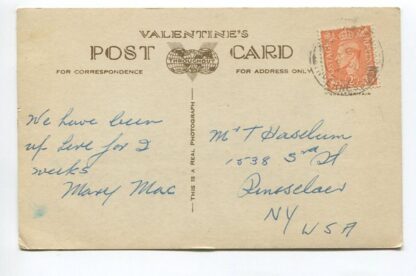 VALENTINE'S
POST CARD
FOR CORRESPONDENCE
FOR ADDRESS ONLY
THIS IS A REAL PHOTOGRAPH
We have been
up here for 2
weeks
Mary Mac
Mrs T Haselum
1538 3rd St
Rensselaer
NY
USA